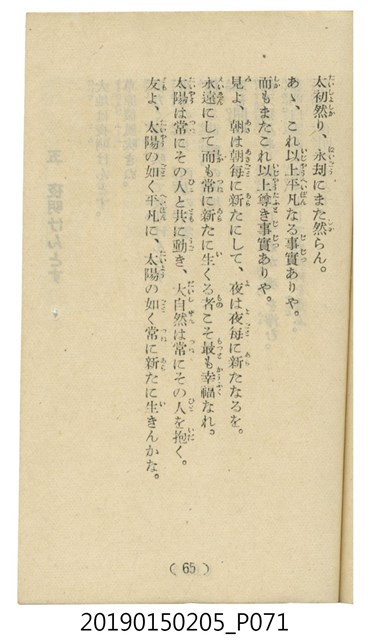 太初然り、永刧にまた然らん。
あゝ、これ以上平凡なる事實ありや。
而もまたこれ以上尊き事實ありや。
見よ、朝は朝每に新たにして、夜は夜每に新たなるを。
永遠にして而も常に新たに生くる者こそ最も幸福なれ。
太陽は常にその人と共に動き、大自然は常にその人を抱く。
友よ、太陽の如く平凡に、太陽の如く常に新たに生きんかな。
(65)
20190150205_P071